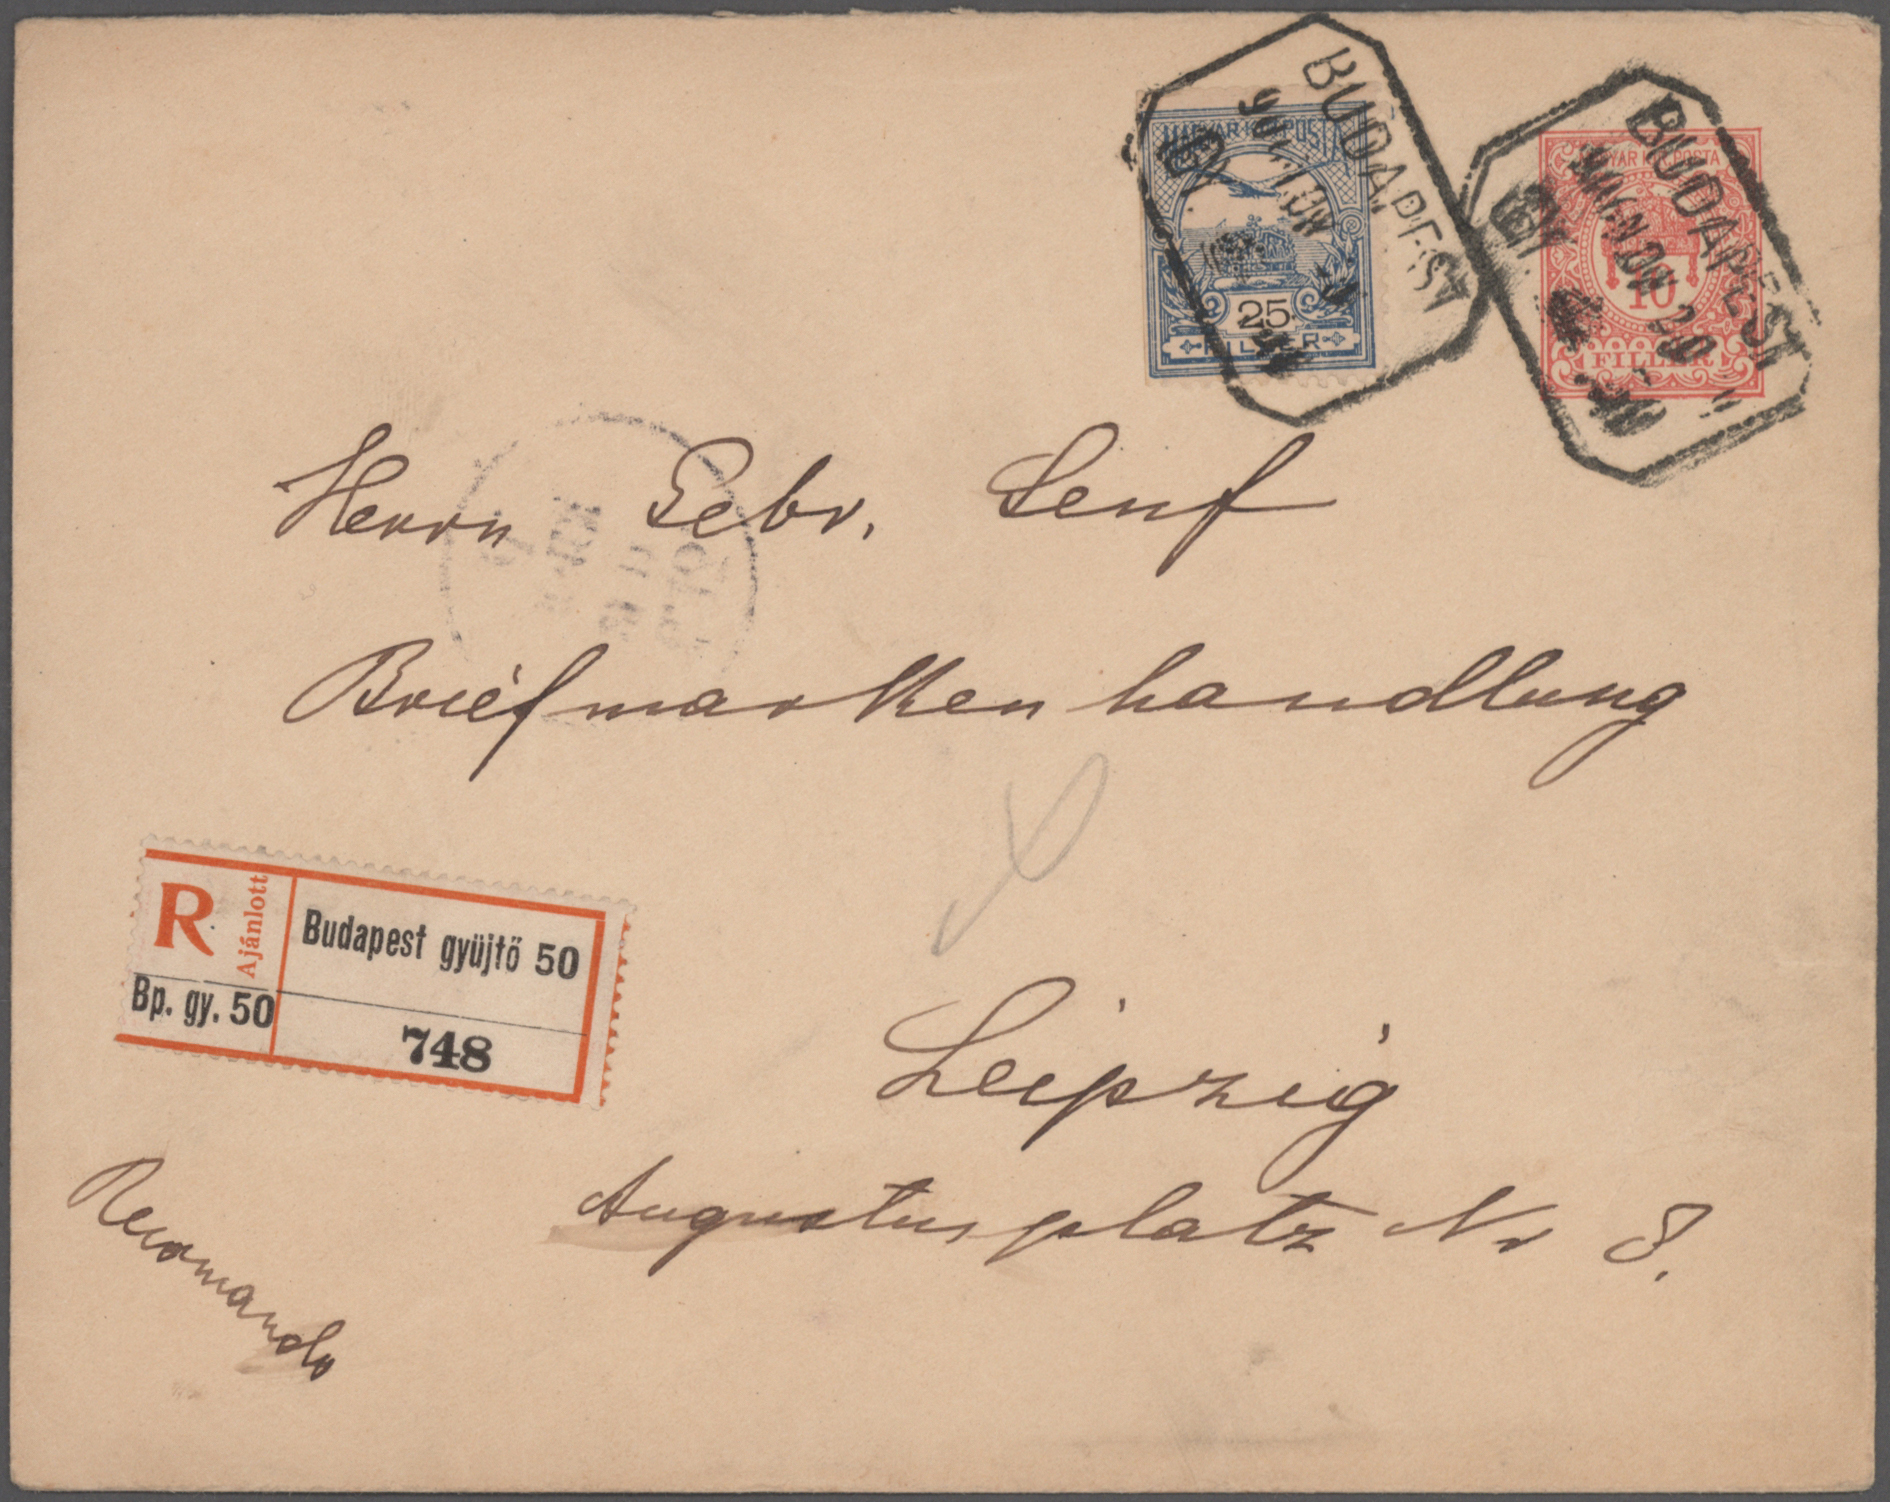 MAGYAR KIR. POSTA
25
FILLÉR
MAGYAR KIR. POSTA
10
FILLÉR
BUDAPEST
BUDAPEST
Herrn Gebr. Senf
Briefmarkenhandlung
R
Ajánlott
Budapest gyüjtő 50
Bp. gy. 50
748
Leipzig
Augustusplatz Nr 8.
Recomando